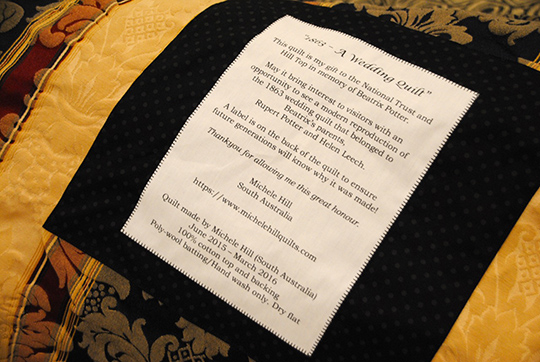 "1863 - A Wedding Quilt"
This quilt is my gift to the National Trust and
Hill Top in memory of Beatrix Potter.
May it bring interest to visitors with an
opportunity to see a modern reproduction of
the 1863 wedding quilt that belonged to
Beatrix's parents,
Rupert Potter and Helen Leech.
A label is on the back of the quilt to ensure
future generations will know why it was made!
Thankyou for allowing me this great honour.
Michele Hill
South Australia
https://www.michelehillquilts.com
Quilt made by Michele Hill (South Australia)
June 2015 – March 2016
100% cotton top and backing
Poly-wool batting/Hand wash only. Dry flat